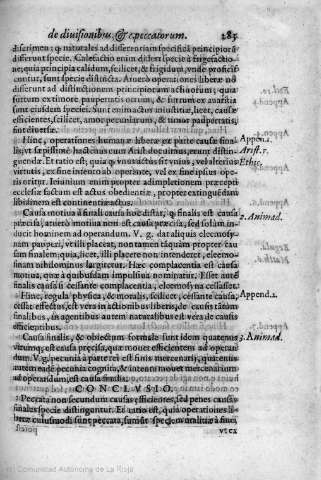 de divisionibus, & c. peccatorum. 285
discrimen: q naturales ad differentiam specificā principiorū
differunt specie. Calefactio enim differt specie à frigefactio
ne; quia principia calidum, scilicet, & frigidum, vnde profici
untur, sunt specie distincta. At verò operationes liberæ nō
differunt ad distinctionem principiorum actiuorum; quia
furtum ex timore paupertatis ortum, & furtum ex auaritia
sunt eiusdem speciei. Sunt enim actus iniustitiæ, licet, causæ
efficientes, scilicet, amor pecuniarum, & timor paupertatis,
sint diuersæ.
Hinc, operationes humanæ liberæ ex parte causæ fina- Append.1.
lis, vt sæpissimè hucusque cum Arist. docuimus, erunt distin- Arist. 1.
guendæ. Et ratio est; quia vnus actus sit vnius, vel alterius Ethic.
virtutis, ex fine intento ab operante, vel ex fine ipsius ope-
ris oritur. Ieiunium enim propter adimpletionem præcepti
ecclesiæ factum est actus obedientiæ, propter extinguendam
libidinem est continentiæ actus.
Causa motiua à finali causa hoc distat; q finalis est causa 2. Animad.
præcisa; at verò motiua non est causa præcisa, sed solùm in-
ducit hominem ad operandum. V. g. dat aliquis eleemosy-
nam pauperi, vt illi placeat, non tamen tāquam propter cau
sam finalem; quia, licet, illi placere non intenderet, eleemo-
sinam nihilominus largiretur. Hæc complacentia est causa
motiua, quæ à quibusdam impulsiua nominatur. Esset autē
finalis causa si cessante complacentia, eleemosyna cessasset.
Hinc, regula physica, & moralis, scilicet, cessante causa, Append.2.
cessat effectus, est vera in actionibus liberis, de causis tātùm
finalibus, in agentibus autem naturalibus est vera de causis
efficientibus.
Causa finalis, & obiectum formale sunt idem quatenus 3. Animad.
vtrumq; est causa præcisa, quæ mouet efficientem ad operan
dum. V. g. pecunia à parte rei est finis mercenarij, quatenus
autem eadē pecunia cognita, & intenta mouet mercenarium
ad operandum, est causa finalis.
CONCLVSIO.
Peccata non secundum causas efficientes, sed penes causas
finales specie distinguntur. Et ratio est, quia operationes li-
beræ cuiusmodi sunt peccata, sumūt speciem vnitatis à fine
vt ex